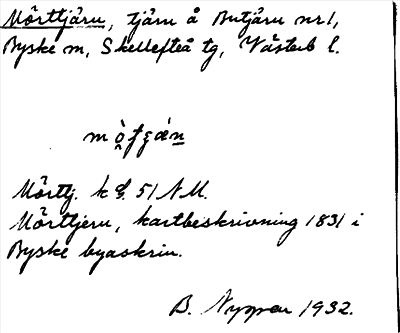 Mörttjäru, tjäru å Butjäru nr 1,
Byske m, Skellefteå tg, Västerb l.
Mörttj. k 51 N M.
Mörttjeru, kartbeskrivning 1831 i
Byske byaskrin.
B. 1932.